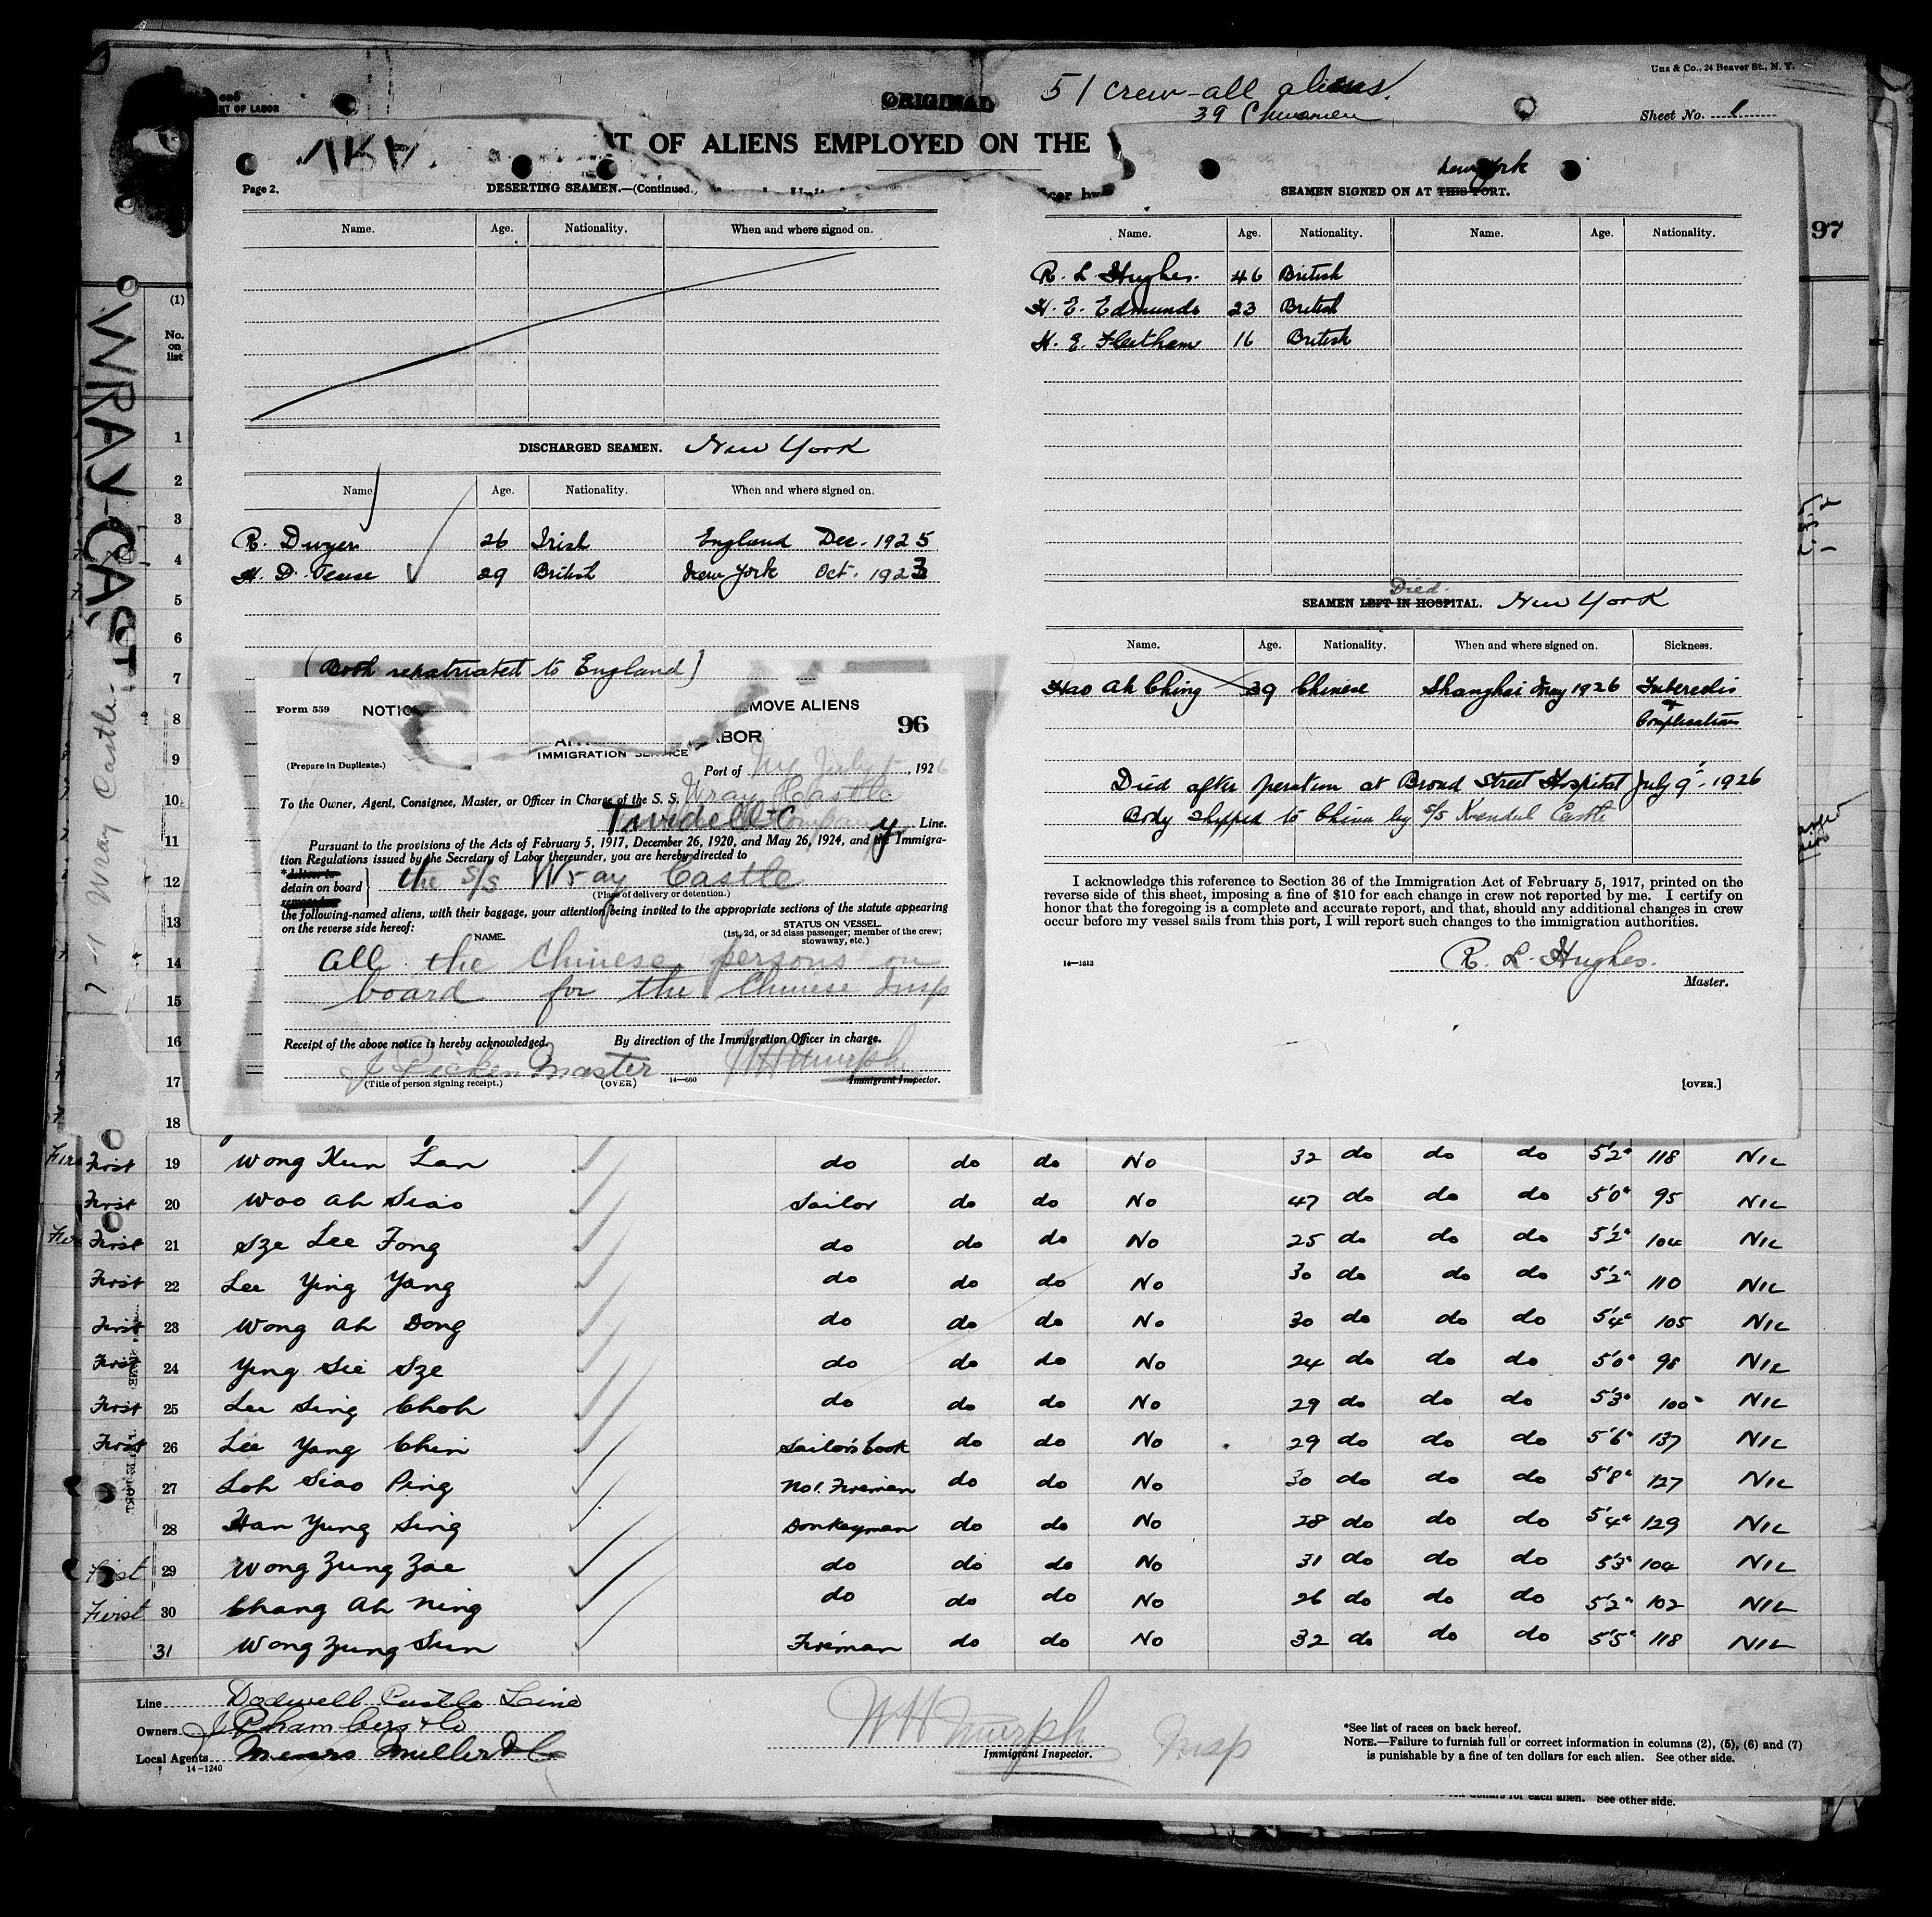 Unz & Co., 24 Beaver St., N. Y.
NT OF LABOR
ORIGINAL
51 crew-all aliens.
39 Chinamen
Sheet No. 1
T OF ALIENS EMPLOYED ON THE
97
(1)
No. on list
WRAY-CAST
Wray Castle
1
2
3
4
5
6
7
8
9
10
11
12
13
14
15
16
17
18
Page 2.
DESERTING SEAMEN.—(Continued.
Name. Age. Nationality. When and where signed on.
DISCHARGED SEAMEN. New York
Name Age. Nationality. When and where signed on.
R. Dwyer 26 Irish England Dec. 1925
H. D. Tense 29 British New York Oct. 1923
(Both repatriated to England)
New York
SEAMEN SIGNED ON AT THIS PORT.
Name. Age. Nationality. Name. Age. Nationality.
R. L. Hughes. 46 British
H. E. Edmunds 23 British
H. E. Fleetham 16 British
Died.
SEAMEN LEFT IN HOSPITAL. New York
Name. Age. Nationality. When and where signed on. Sickness.
Hao Ah Ching 39 Chinese Shanghai May 1926
& Complications
Died after operation at Broad Street Hospital July 9. 1926
Body shipped to China by s/s Kendal Castle
I acknowledge this reference to Section 36 of the Immigration Act of February 5, 1917, printed on the
reverse side of this sheet, imposing a fine of $10 for each change in crew not reported by me. I certify on
honor that the foregoing is a complete and accurate report, and that, should any additional changes in crew
occur before my vessel sails from this port, I will report such changes to the immigration authorities.
14—1613
R. L. Hughes.
Master.
[OVER.]
Form 559 NOTIC MOVE ALIENS
96
ABOR
IMMIGRATION SERVICE
(Prepare in Duplicate.)
Port of NY July , 1926
To the Owner, Agent, Consignee, Master, or Officer in Charge of the S. S. Wray Castle
Company Line.
Pursuant to the provisions of the Acts of February 5, 1917, December 26, 1920, and May 26, 1924, and the Immigra-
tion Regulations issued by the Secretary of Labor thereunder, you are hereby directed to
detain on board } the s/s Wray Castle
(Place of delivery or detention.)
the following-named aliens, with their baggage, your attention being invited to the appropriate sections of the statute appearing
on the reverse side hereof:
NAME. STATUS ON VESSEL.
(1st, 2d, or 3d class passenger; member of the crew;
stowaway, etc.)
All the Chinese persons on
board for the Chinese Insp
Receipt of the above notice is hereby acknowledged. By direction of the Immigration Officer in charge.
Master W H Murph
(Title of person signing receipt.) (OVER) 14—660 Immigrant Inspector.
First 19 Wong Kun Lan do do do No 32 do do do 5'2" 118 NIL
First 20 Woo Ah Siao Sailor do do No 47 do do do 5'0" 95 NIL
First 21 Sze Lee Fong do do do No 25 do do do 5'2" 104 NIL
First 22 Lee Ying Yang do do do No 30 do do do 5'2" 110 NIL
First 23 Wong Ah Dong do do do No 30 do do do 5'4" 105 NIL
First 24 Ying Sie Sze do do do No 24 do do do 5'0" 98 NIL
First 25 Lee Sing Choh do do do No 29 do do do 5'3" 100 NIL
First 26 Lee Yang Chin Sailor's Cook do do No 29 do do do 5'6" 137 NIL
27 Loh Siao Ping No 1. Fireman do do No 30 do do do 5'8" 127 NIL
28 Han Yung Sing Donkeyman do do No 28 do do do 5'4" 129 NIL
First 29 Wong Zung Zae do do do No 31 do do do 5'3" 104 NIL
First 30 Chang Ah Ning do do do No 26 do do do 5'2" 102 NIL
31 Wong Zung Sun Fireman do do No 32 do do do 5'5" 118 NIL
Line Dodwell Castle Line
Owners J Chambers & Co
Local Agents Messrs Miller & Co
14-1240
W H Murph Insp
Immigrant Inspector.
*See list of races on back hereof.
NOTE.—Failure to furnish full or correct information in columns (2), (5), (6) and (7)
is punishable by a fine of ten dollars for each alien. See other side.
See other side.